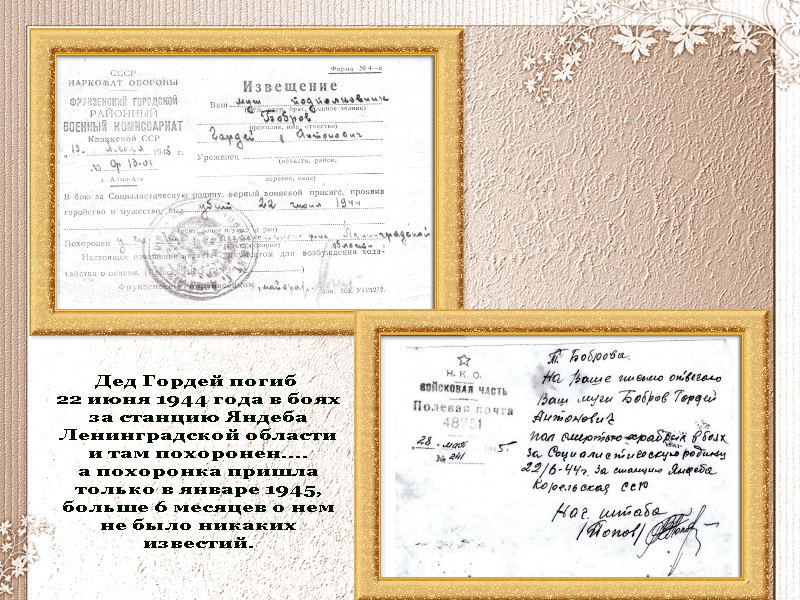 Форма № 4—а
СССР
НАРКОМАТ ОБОРОНЫ
ФРУНЗЕНСКИЙ ГОРОДСКОЙ
РАЙОННЫЙ
ВОЕННЫЙ КОМИССАРИАТ
Казахской ССР
13 января 1945 г.
№
г. Алма-Ата
Извещение
Ваш муж подполковник
Бобров
(фамилия, имя, отчество)
Гардей Антонович
Уроженец
(область, район,
деревня, село)
В бою за Социалистическую родину, верный воинской присяге, проявив
геройство и мужество, был убит 22 июня 1944
Похоронен у р-на Ленинградской
области
Настоящее извещение является документом для возбуждения хода-
тайства о пенсии.
майор
Н. К. О.
ВОЙСКОВАЯ ЧАСТЬ
Полевая почта
48751
№ 241
Т. Боброва.
На Ваше письмо отвечаю
Ваш муж Бобров Гордей
Антонович
пал смертью храбрых в боях
за Социалистическую родину
22/6-44г. за станцию Яндеба
Карельская ССР
Нач. штаба
/Попов/
Дед Гордей погиб
22 июня 1944 года в боях
за станцию Яндеба
Ленинградской области
и там похоронен....
а похоронка пришла
только в январе 1945,
больше 6 месяцев о нем
не было никаких
известий.